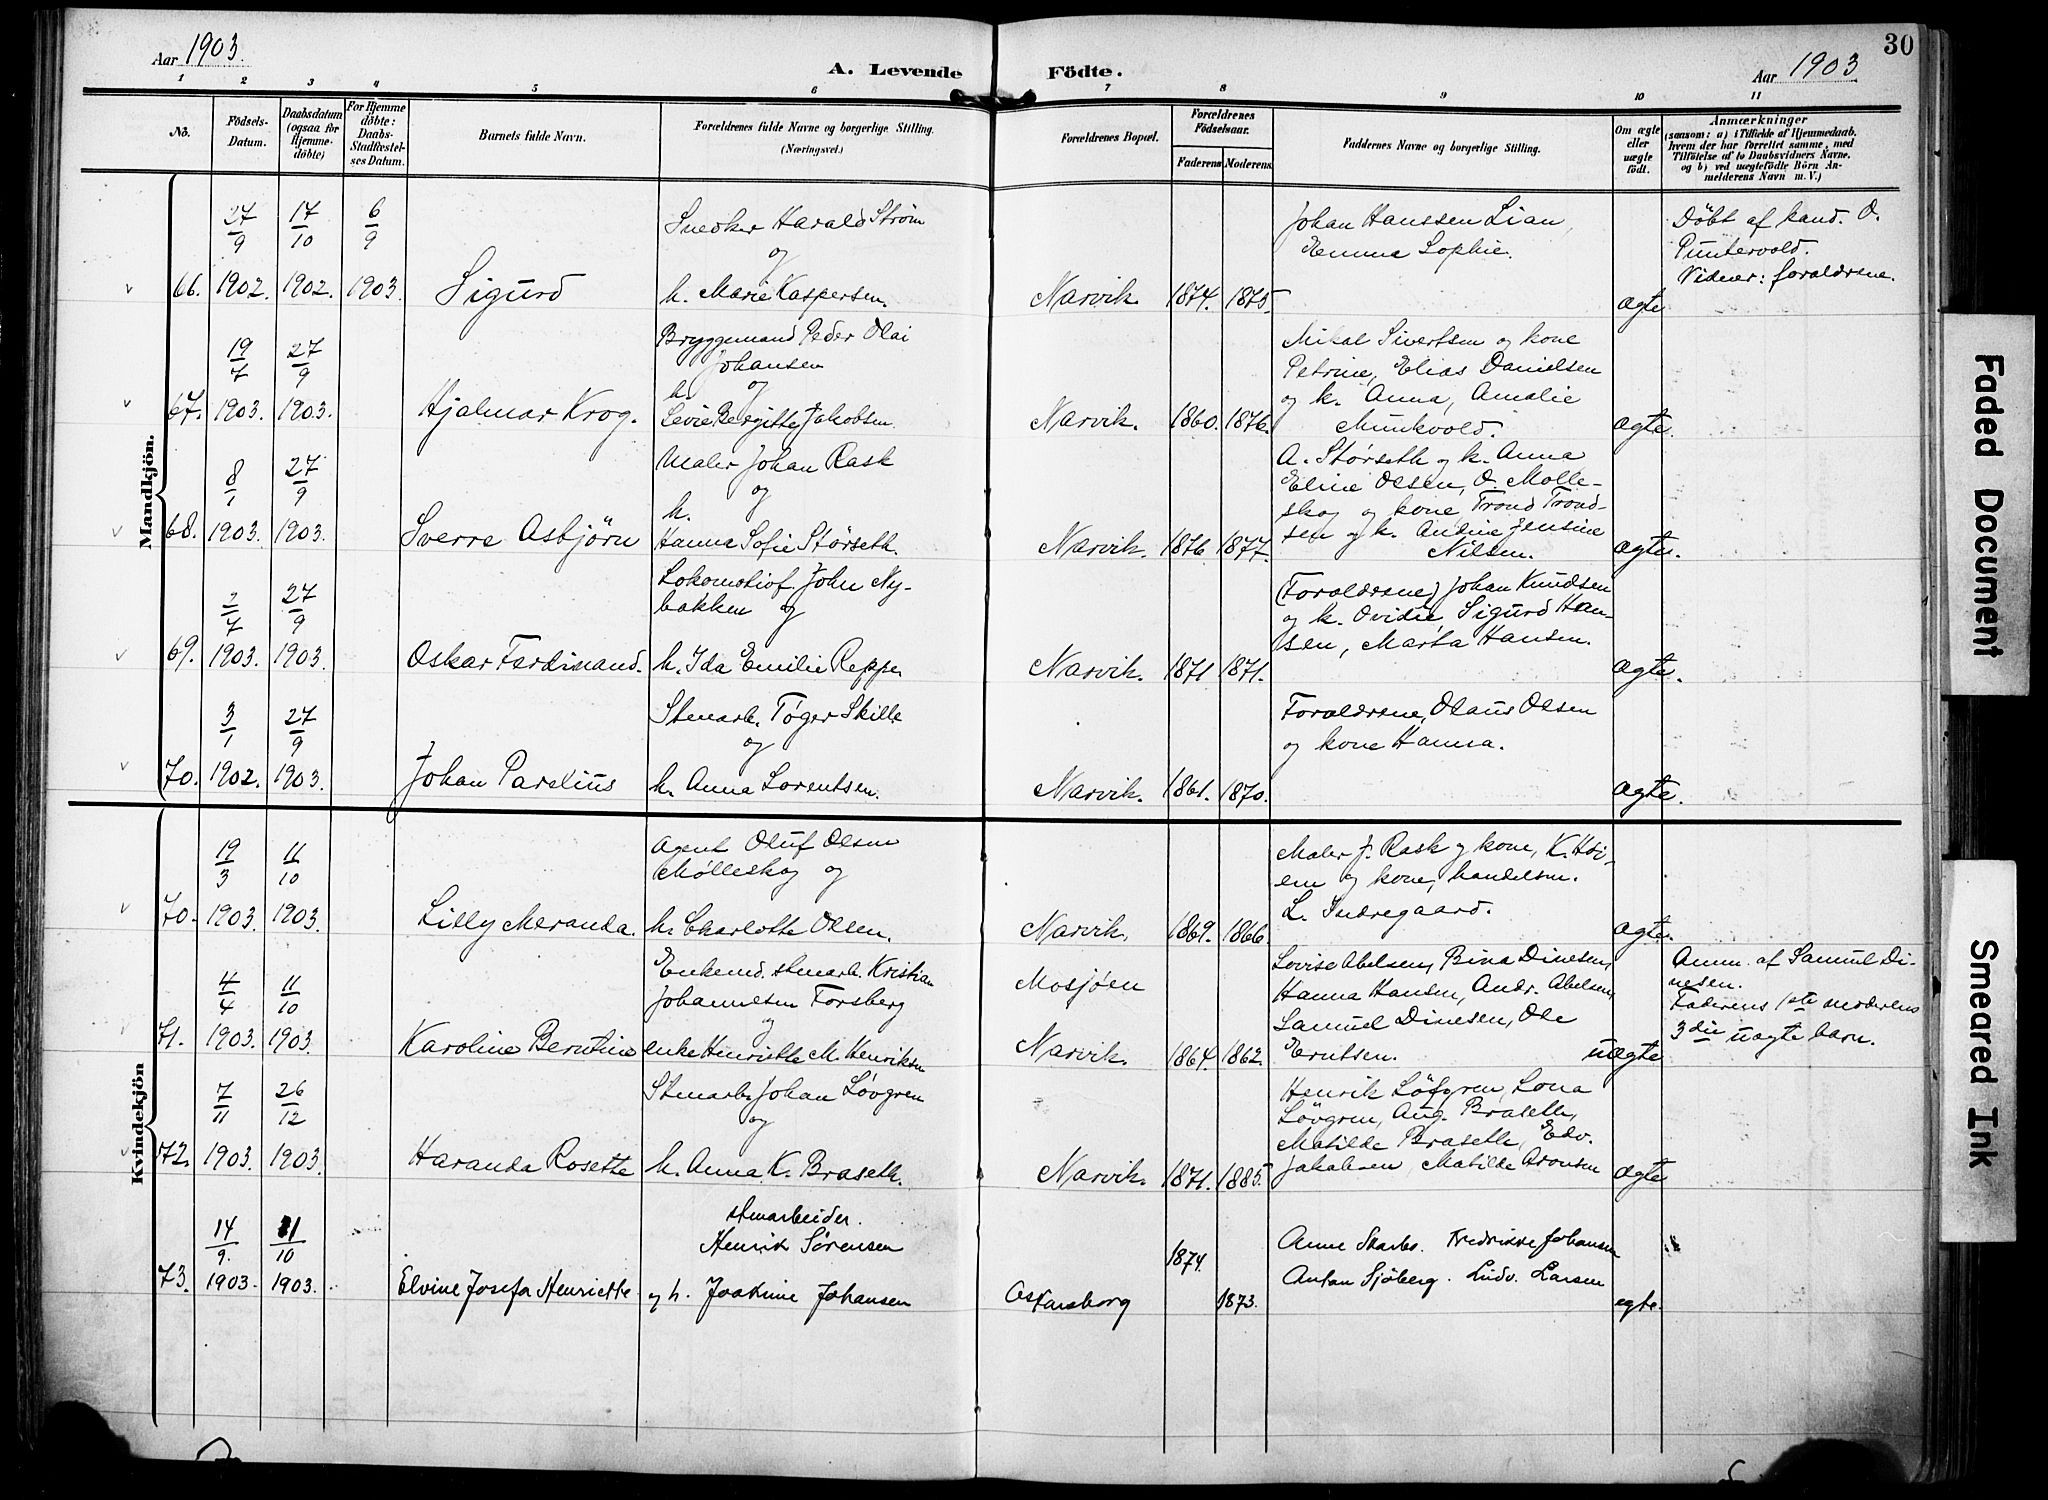 Aar 1903.
A. Levende Födte.
Aar 1903
30
1 2 3 4 5 6 7 8 9 10 11
No.
Födsels-
Datum.
Daabsdatum
(ogsaa for
Hjemme-
döbte)
For Hjemme
döbte:
Daabs-
Stadfæstel-
ses Datum.
Barnets fulde Navn.
Forældrenes fulde Navne og borgerlige Stilling.
(Næringsvei.)
Forældrenes Bopæl.
Forældrenes
Födselsaar.
Faderens Moderens
Faddernes Navne og borgerlige Stilling.
Om ægte
eller
uægte
födt.
Anmærkninger
(saasom: a) i Tilfælde af Hjemmedaab.
hvem der har forrettet samme, med
Tilföielse af to Daabsvidners Navne.
og b) ved uægtefödte Börn An-
melderens Navn m. V.)
Mandkjön.
66.
27/9
1902.
17/10
1902.
6/9
1903.
Sigurd
Snedker Harald Strøm
og
h. Marie Kaspersen.
Narvik. 1874. 1875.
Johan Hanssen Lian,
Emma Sophie.
ægte
Döbt af kand. O.
Puntervold.
Vidner: forældrene.
67.
19/7
1903.
27/9
1903.
Hjalmar Krog.
Bryggemand Peder Olai
Johansen
og
h.
Levie Bergitte Jakobsen.
Narvik. 1860. 1876.
Mikal Sivertsen og kone
Petrine, Elias Danielsen
og k. Anna, Amalie
Munkvold.
ægte.
68.
8/1
1903.
27/9
1903.
Sverre Asbjörn
Maler Johan Rask
og
h.
Hanna Sofie Störseth.
Narvik. 1876 1877.
A. Störseth og k. Anna
Eline Olsen, O. Mölle-
skog og kone Trond Trond-
sen og k. Antine Jensine
Nilsen.
ægte.
69.
2/7
1903.
27/9
1903.
Oskar Ferdinand.
Lokomotivf. John Ny-
bakken og
h. Ida Emilie Reppe.
Narvik. 1871 1871.
(Forældrene) Johan Knudsen
og k. Ovidie, Sigurd Han-
sen, Marta Hansen.
ægte.
70.
3/1
1902.
27/9
1903.
Johan Parelius
Stenarb. Töger Skille
og
h. Anna Lorentsen.
Narvik. 1861. 1870.
Forældrene, Olaus Olsen
og kone Hanna.
ægte.
Kvindekjön
70.
19/3
1903.
11/10
1903.
Lilly Meranda.
Agent Oluf Olsen
Mølleskog og
h. Charlotte Olsen.
Narvik. 1869. 1866.
Maler J. Rask og kone, K. Höi-
em og kone, handelsm.
L. Indregaard.
ægte.
71.
4/4
1903.
11/10
1903.
Karoline Berntine
Enkemd. stenarb. Kristian
Johannesen Forsberg
og
enke Henriette M. Henriksen
Mosjöen
Narvik. 1864. 1862.
Lovise Abelsen, Bina Dinesen,
Hanna Hansen, Andr. Abelsen,
Samuel Dinesen, Ole
Erntsen.
uægte
Anm. af Samuel Di-
nesen.
Faderens 1ste moderens
3die uægte barn.
72.
7/11
1903.
26/12
1903.
Haranda Rosette
Stenarb. Johan Lövgren
og
h. Anna K. Braseth.
Narvik. 1871. 1885.
Henrik Löfgren, Lona
Lövgren, Aug. Braseth,
Matilde Braseth, Edv.
Jakobsen, Matilde Aronsen
ægte
73.
14/9.
1903.
11/10
1903.
Elvine Josefa Henriette
stenarbeider.
Henrik Sørensen
og h. Joakime Johansen
Oskarsborg
1874.
1873.
Anne Skarbs. Fredrikke Johansen
Anton Sjöberg. Ludv. Larsen
egte.
Faded Document
Smeared Ink